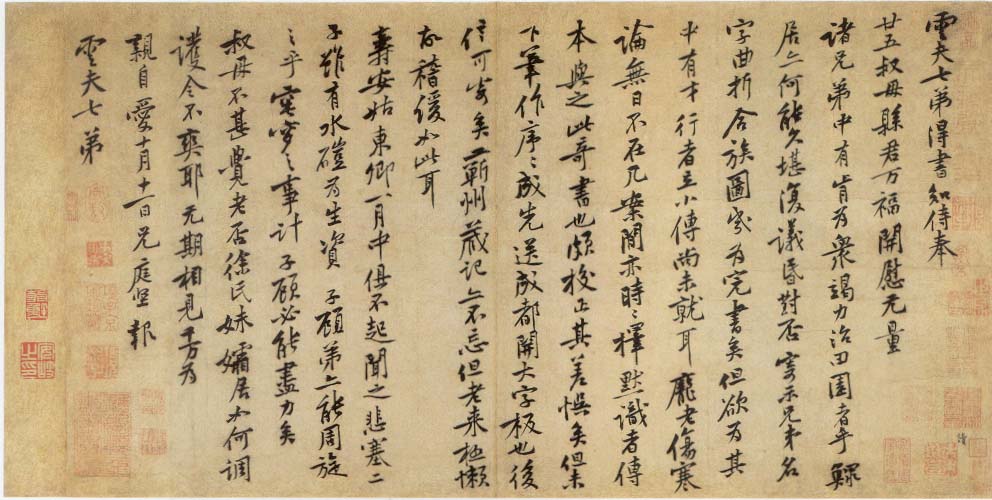 雲夫七弟得書知侍奉
廿五叔母縣君万福開慰无量
諸兄弟中有肯為衆竭力治田園者乎鰥
居亦何能久堪復議昏對否寄示兄弟名
字曲折合族圖幾為完書矣但欲為其
中有才行者立小傳尚未就耳龐老傷寒
論無日不在几案間亦時〻擇默識者傳
本與之此奇書也頗校正其差悞矣但未
下筆作序〻成先送成都開大字板也後
信可寄矣蘄州藏記亦不忘但老來極懶
故稽緩如此耳
壽安姑東卿一月中俱不起聞之悲塞二
子雖有水磑為生資子顧弟亦能周旋
之乎窀穸之事計子顧必能盡力矣
叔母不甚覺老否徐氏妹孀居如何調
護令不爽耶无期相見千万為
親自愛十月十一日兄庭堅報
雲夫七弟